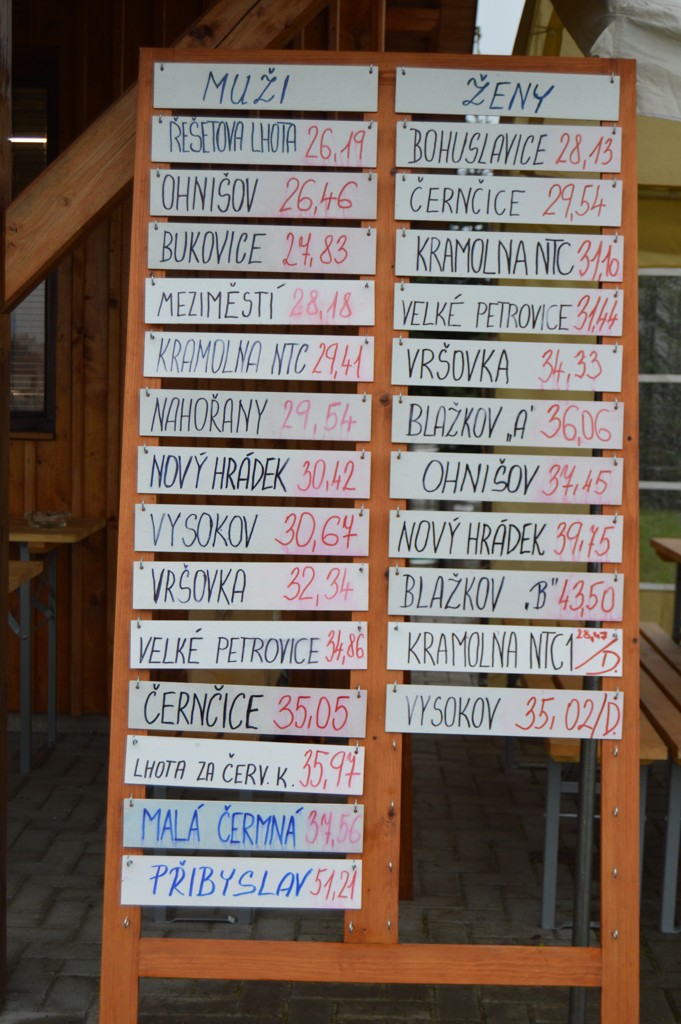 MUŽI
ŘEŠETOVA LHOTA 26,19
OHNIŠOV 26,46
BUKOVICE 27,83
MEZIMĚSTÍ 28,18
KRAMOLNA NTC 29,41
NAHOŘANY 29,54
NOVÝ HRÁDEK 30,42
VYSOKOV 30,67
VRŠOVKA 32,34
VELKÉ PETROVICE 34,86
ČERNČICE 35,05
LHOTA ZA ČERV. K. 35,97
MALÁ ČERMNÁ 37,56
PŘIBYSLAV 51,21
ŽENY
BOHUSLAVICE 28,13
ČERNČICE 29,54
KRAMOLNA NTC 31,10
VELKÉ PETROVICE 31,44
VRŠOVKA 34,33
BLAŽKOV „A" 36,06
OHNIŠOV 37,45
NOVÝ HRÁDEK 39,75
BLAŽKOV „B" 43,50
KRAMOLNA NTC1 28,47/D.
VYSOKOV 35,02/D.